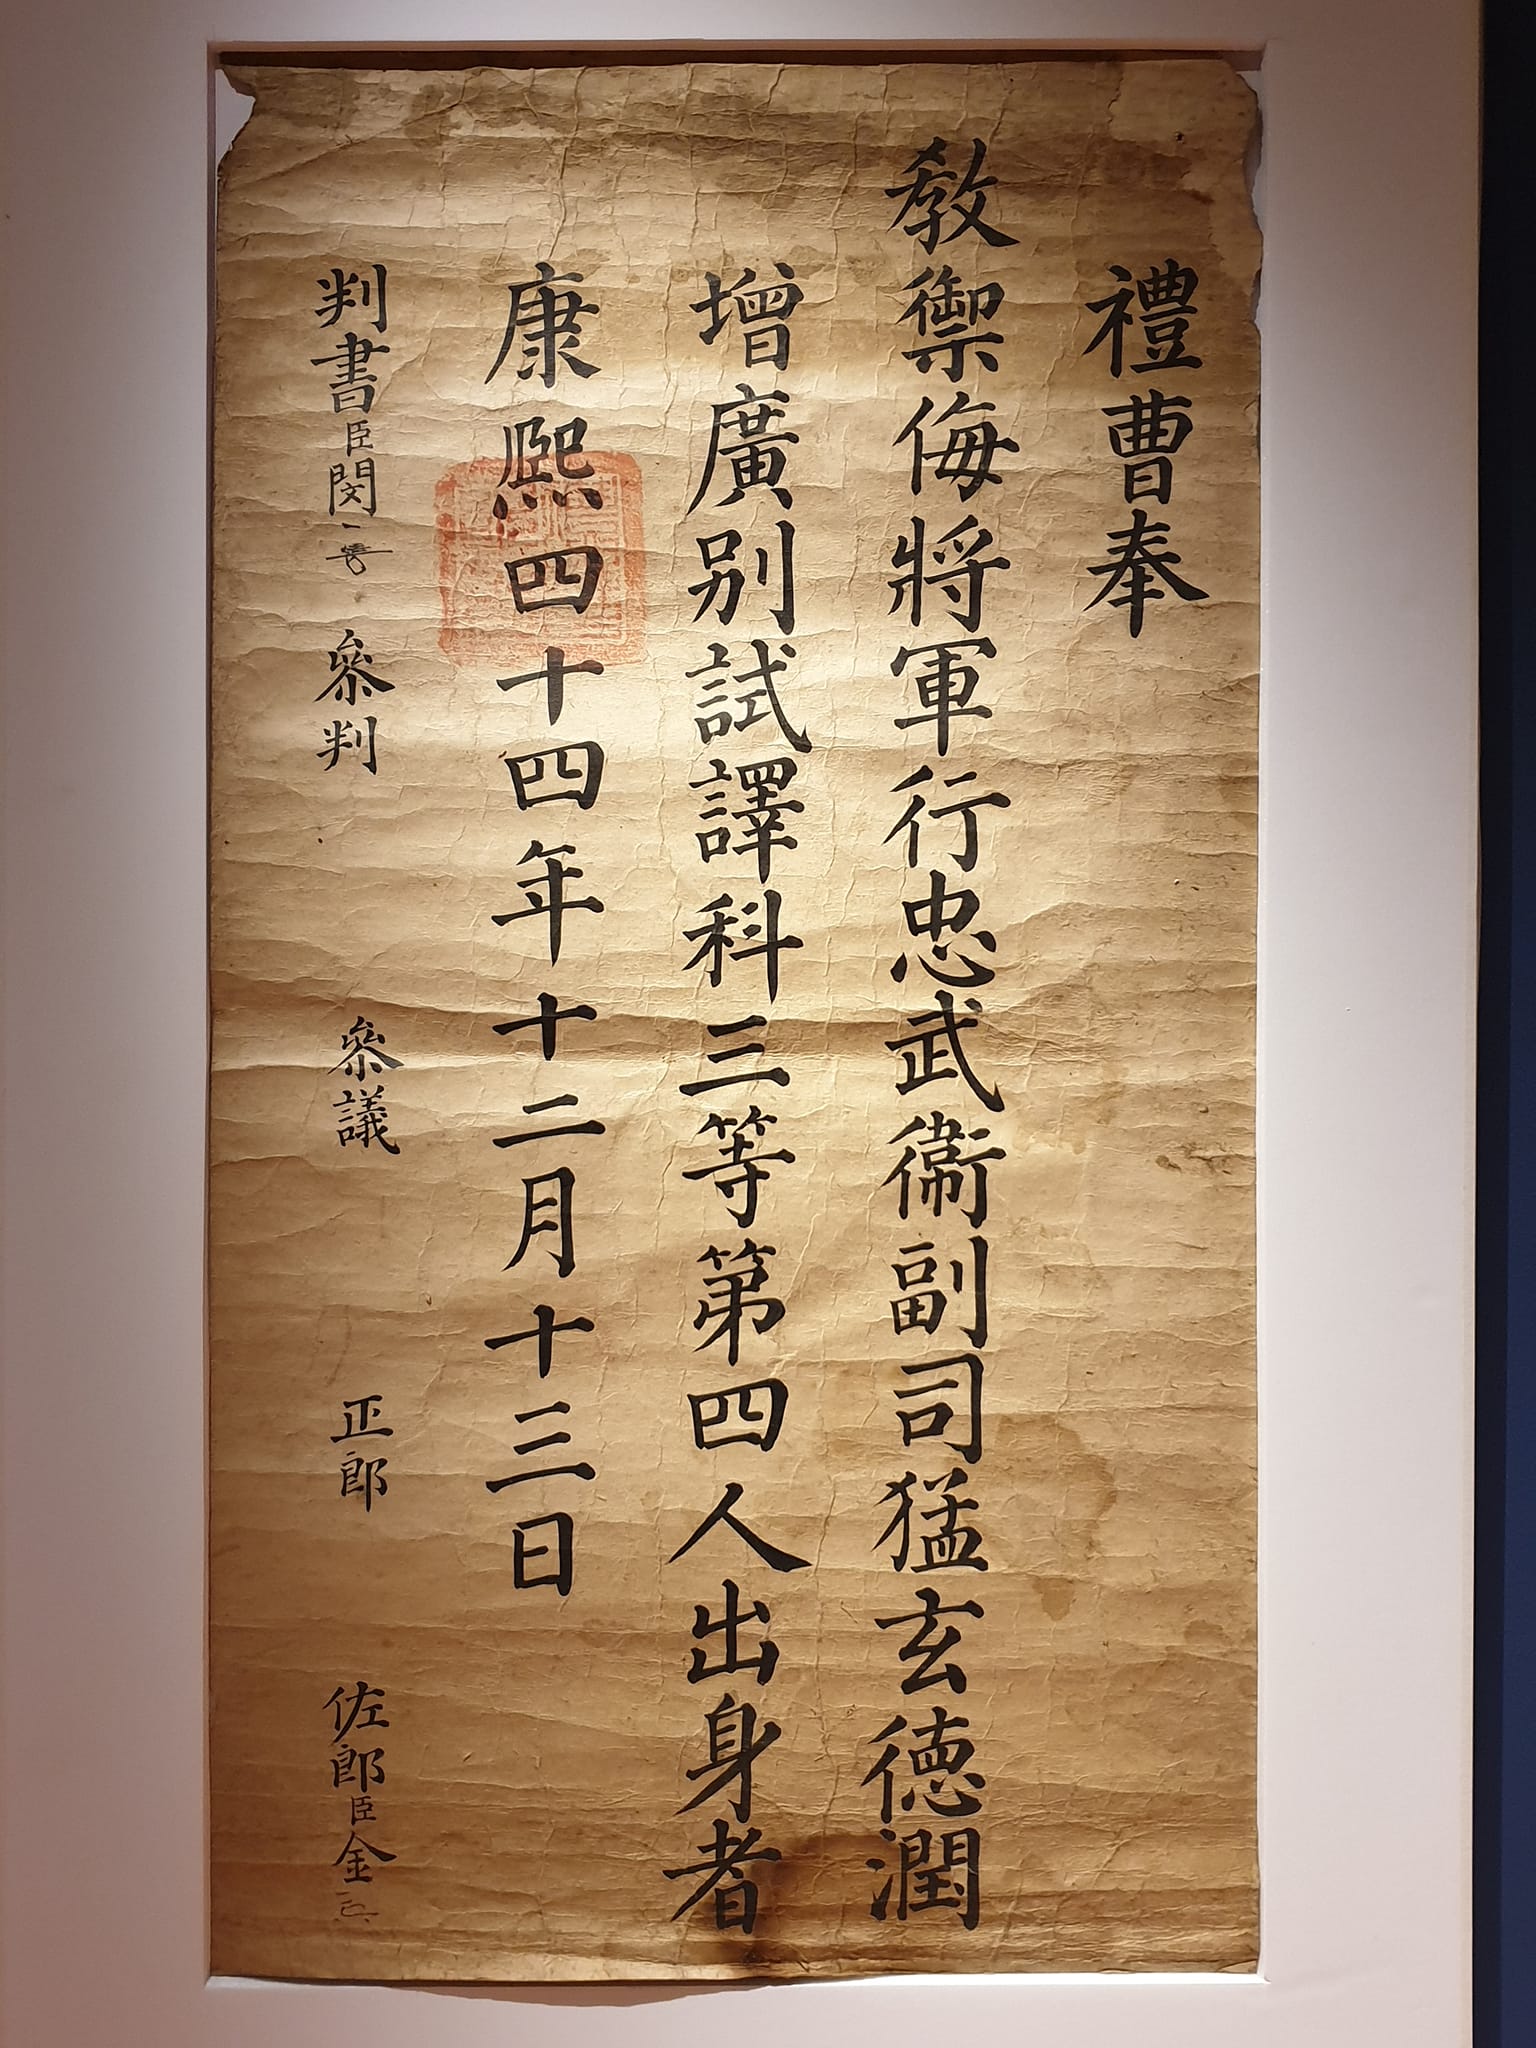 禮曹奉
敎禦侮將軍行忠武衛副司猛玄德潤
增廣别試譯科三等第四人出身者
康熙四十四年十二月十三日
判書臣閔 參判 參議 正郎 佐郎臣金